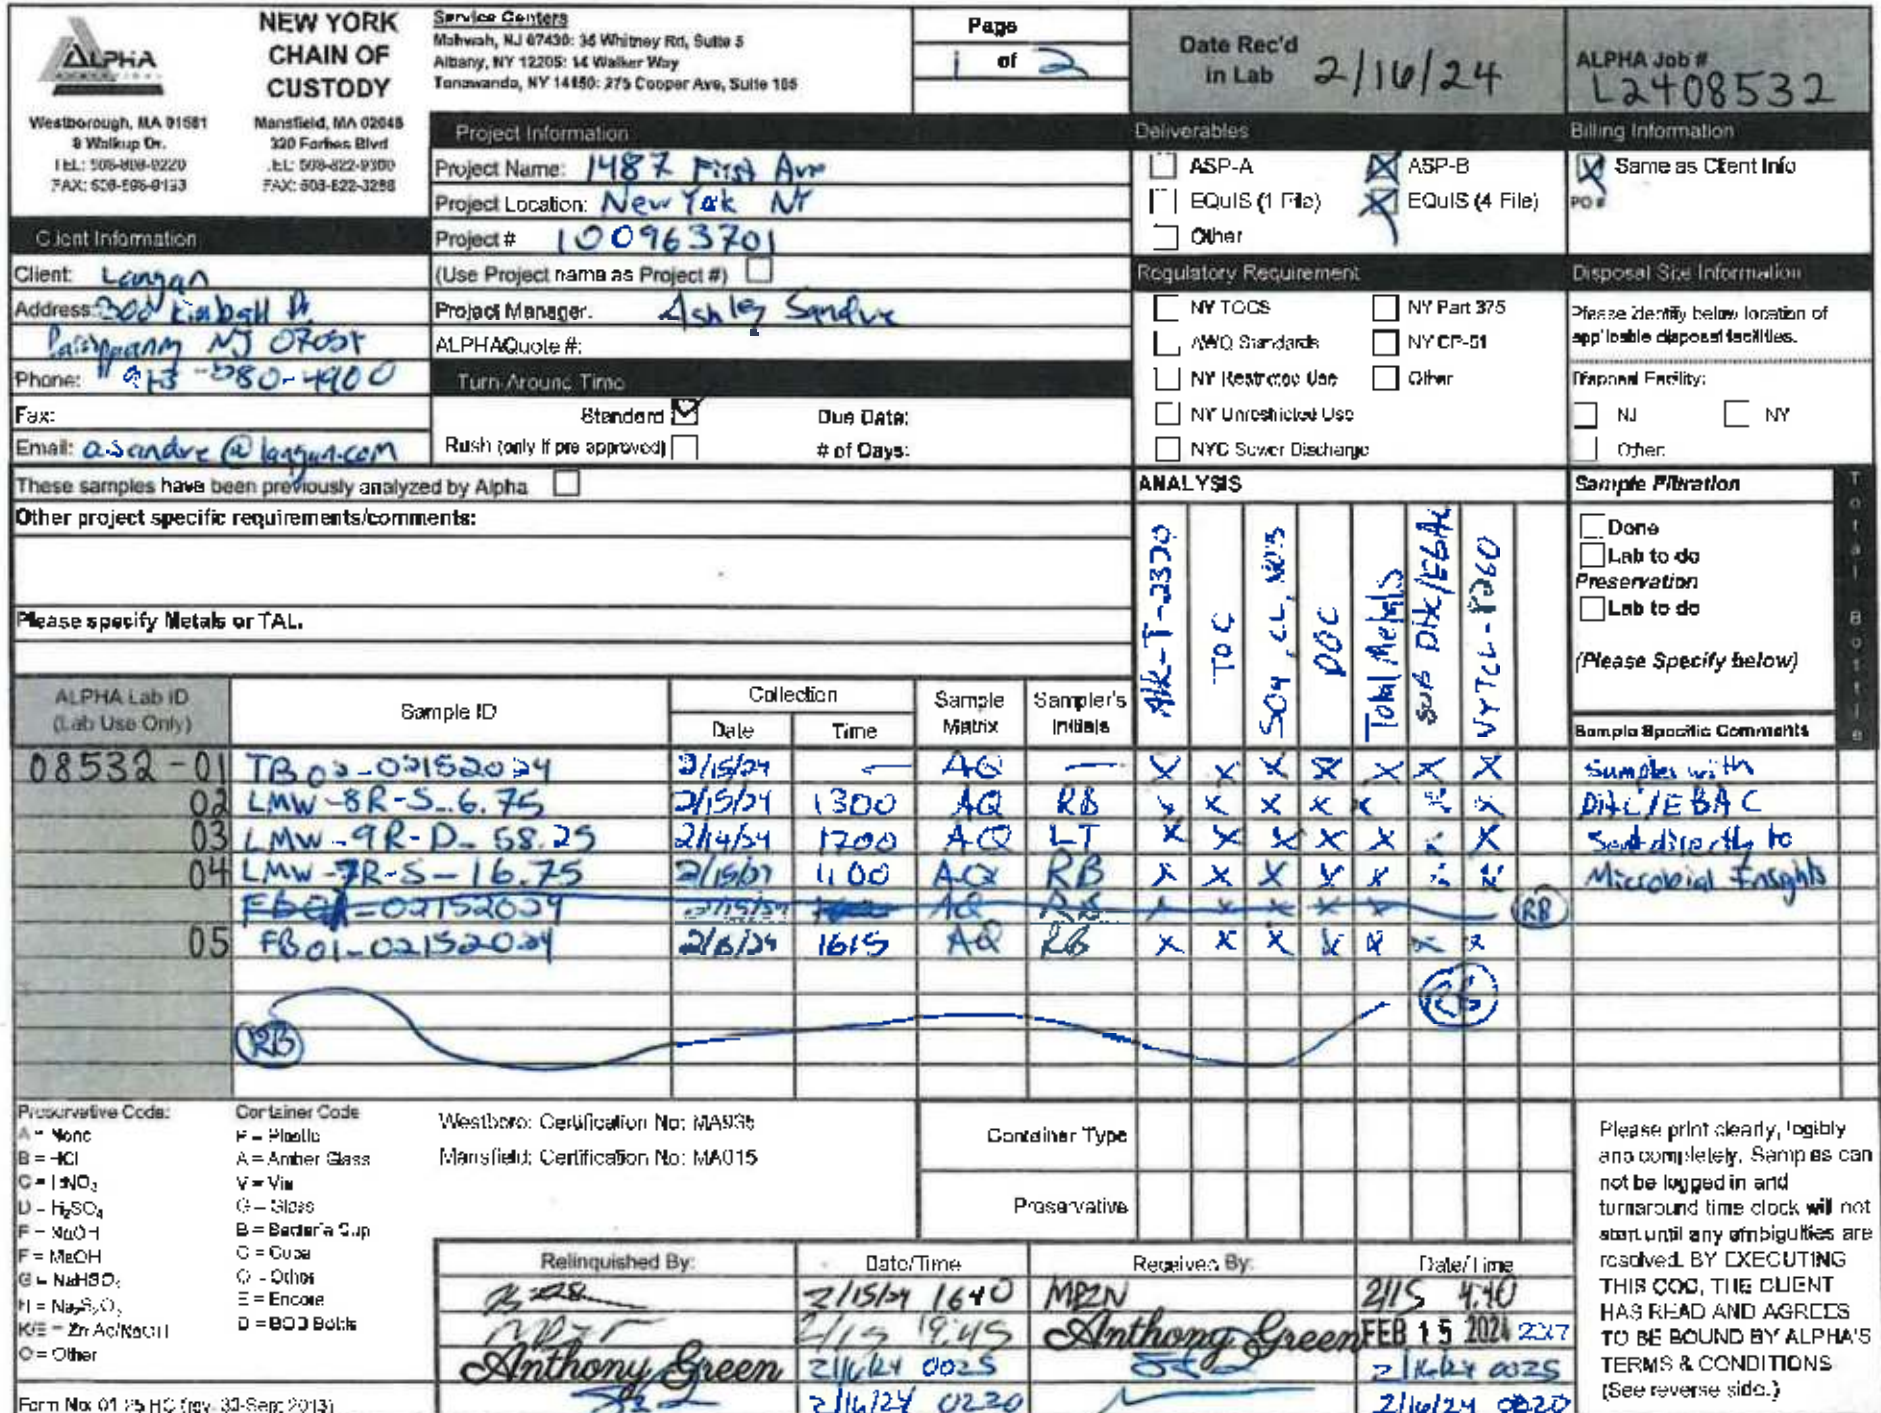 ALPHA
ANALYTICAL
NEW YORK
CHAIN OF
CUSTODY
Westborough, MA 01581
8 Walkup Dr.
Mansfield, MA 02048
320 Forbes Blvd
TEL: 508-822-9300
FAX: 508-822-3288
Service Centers
Mahwah, NJ 07430: 35 Whitney Rd, Suite 5
Albany, NY 12205: 14 Walker Way
Tonawanda, NY 14150: 275 Cooper Ave, Suite 105
Page
1 of 2
Date Rec'd
in Lab 2/16/24
ALPHA Job #
L2408532
Client Information
Client: Langan
Address: 300 Kimball
NJ
Phone:
Fax:
Email: asandre@langan.com
Project Information
Project Name: 1487 First Ave
Project Location: New York NY
Project # 100963701
(Use Project name as Project #)
Project Manager: Ashley Sandre
ALPHAQuote #:
Turn-Around Time
Standard Due Date:
Rush (only if pre approved) # of Days:
Deliverables
ASP-A ASP-B
EQuIS (1 File) EQuIS (4 File)
Other
Regulatory Requirement
NY TOGS NY Part 375
AWQ Standards NY CP-51
NY Restricted Use Other
NY Unrestricted Use
NYC Sewer Discharge
Billing Information
Same as Client Info
PO #
Disposal Site Information
Please identify below location of
applicable disposal facilities.
Disposal Facility:
NJ NY
Other:
These samples have been previously analyzed by Alpha
Other project specific requirements/comments:
Please specify Metals or TAL.
ANALYSIS
Alk-T-2320
TOC
SO4, CL, NO3
DOC
Total Metals
SUB DHC/EBAC
NYTCL-8260
Sample Filtration
Done
Lab to do
Preservation
Lab to do
(Please Specify below)
Total Bottle
Sample Specific Comments
ALPHA Lab ID
(Lab Use Only)
Sample ID
Collection
Date Time
Sample
Matrix
Sampler's
Initials
08532-01 2/15/24 — AQ — X X X X X X X Samples with
02 LMW-8R-S_6.75 2/15/24 1300 AQ RB X X X X X X X DHC/EBAC
03 LMW-9R-D_58.25 2/14/24 1200 AQ LT X X X X X X X Sent directly to
04 LMW-7R-S-16.75 1100 AQ RB X X X X X X X Microbial Insights
AQ RB X X X X X RB
05 FB01-02152024 1615 AQ RB X X X X X X X
RB
RB
Preservative Code:
A = None
B = HCl
C = HNO3
D = H2SO4
E = NaOH
F = MeOH
G = NaHSO4
H = Na2S2O3
K/E = Zn Ac/NaOH
O = Other
Container Code
P = Plastic
A = Amber Glass
V = Vial
G = Glass
B = Bacteria Cup
C = Cube
O = Other
E = Encore
D = BOD Bottle
Westboro: Certification No: MA935
Mansfield: Certification No: MA015
Container Type
Preservative
Relinquished By: Date/Time Received By: Date/Time
2/15/24 1640 2/15 4:40
2/15 19:45 Anthony Green FEB 15 2024
Anthony Green 2/16/24 0025 2/16/24 0025
2/16/24 0220 2/16/24 0220
Please print clearly, legibly
and completely. Samples can
not be logged in and
turnaround time clock will not
start until any ambiguities are
resolved. BY EXECUTING
THIS COC, THE CLIENT
HAS READ AND AGREES
TO BE BOUND BY ALPHA'S
TERMS & CONDITIONS.
(See reverse side.)
Form No: 01-25 HC (rev. 30-Sept-2013)